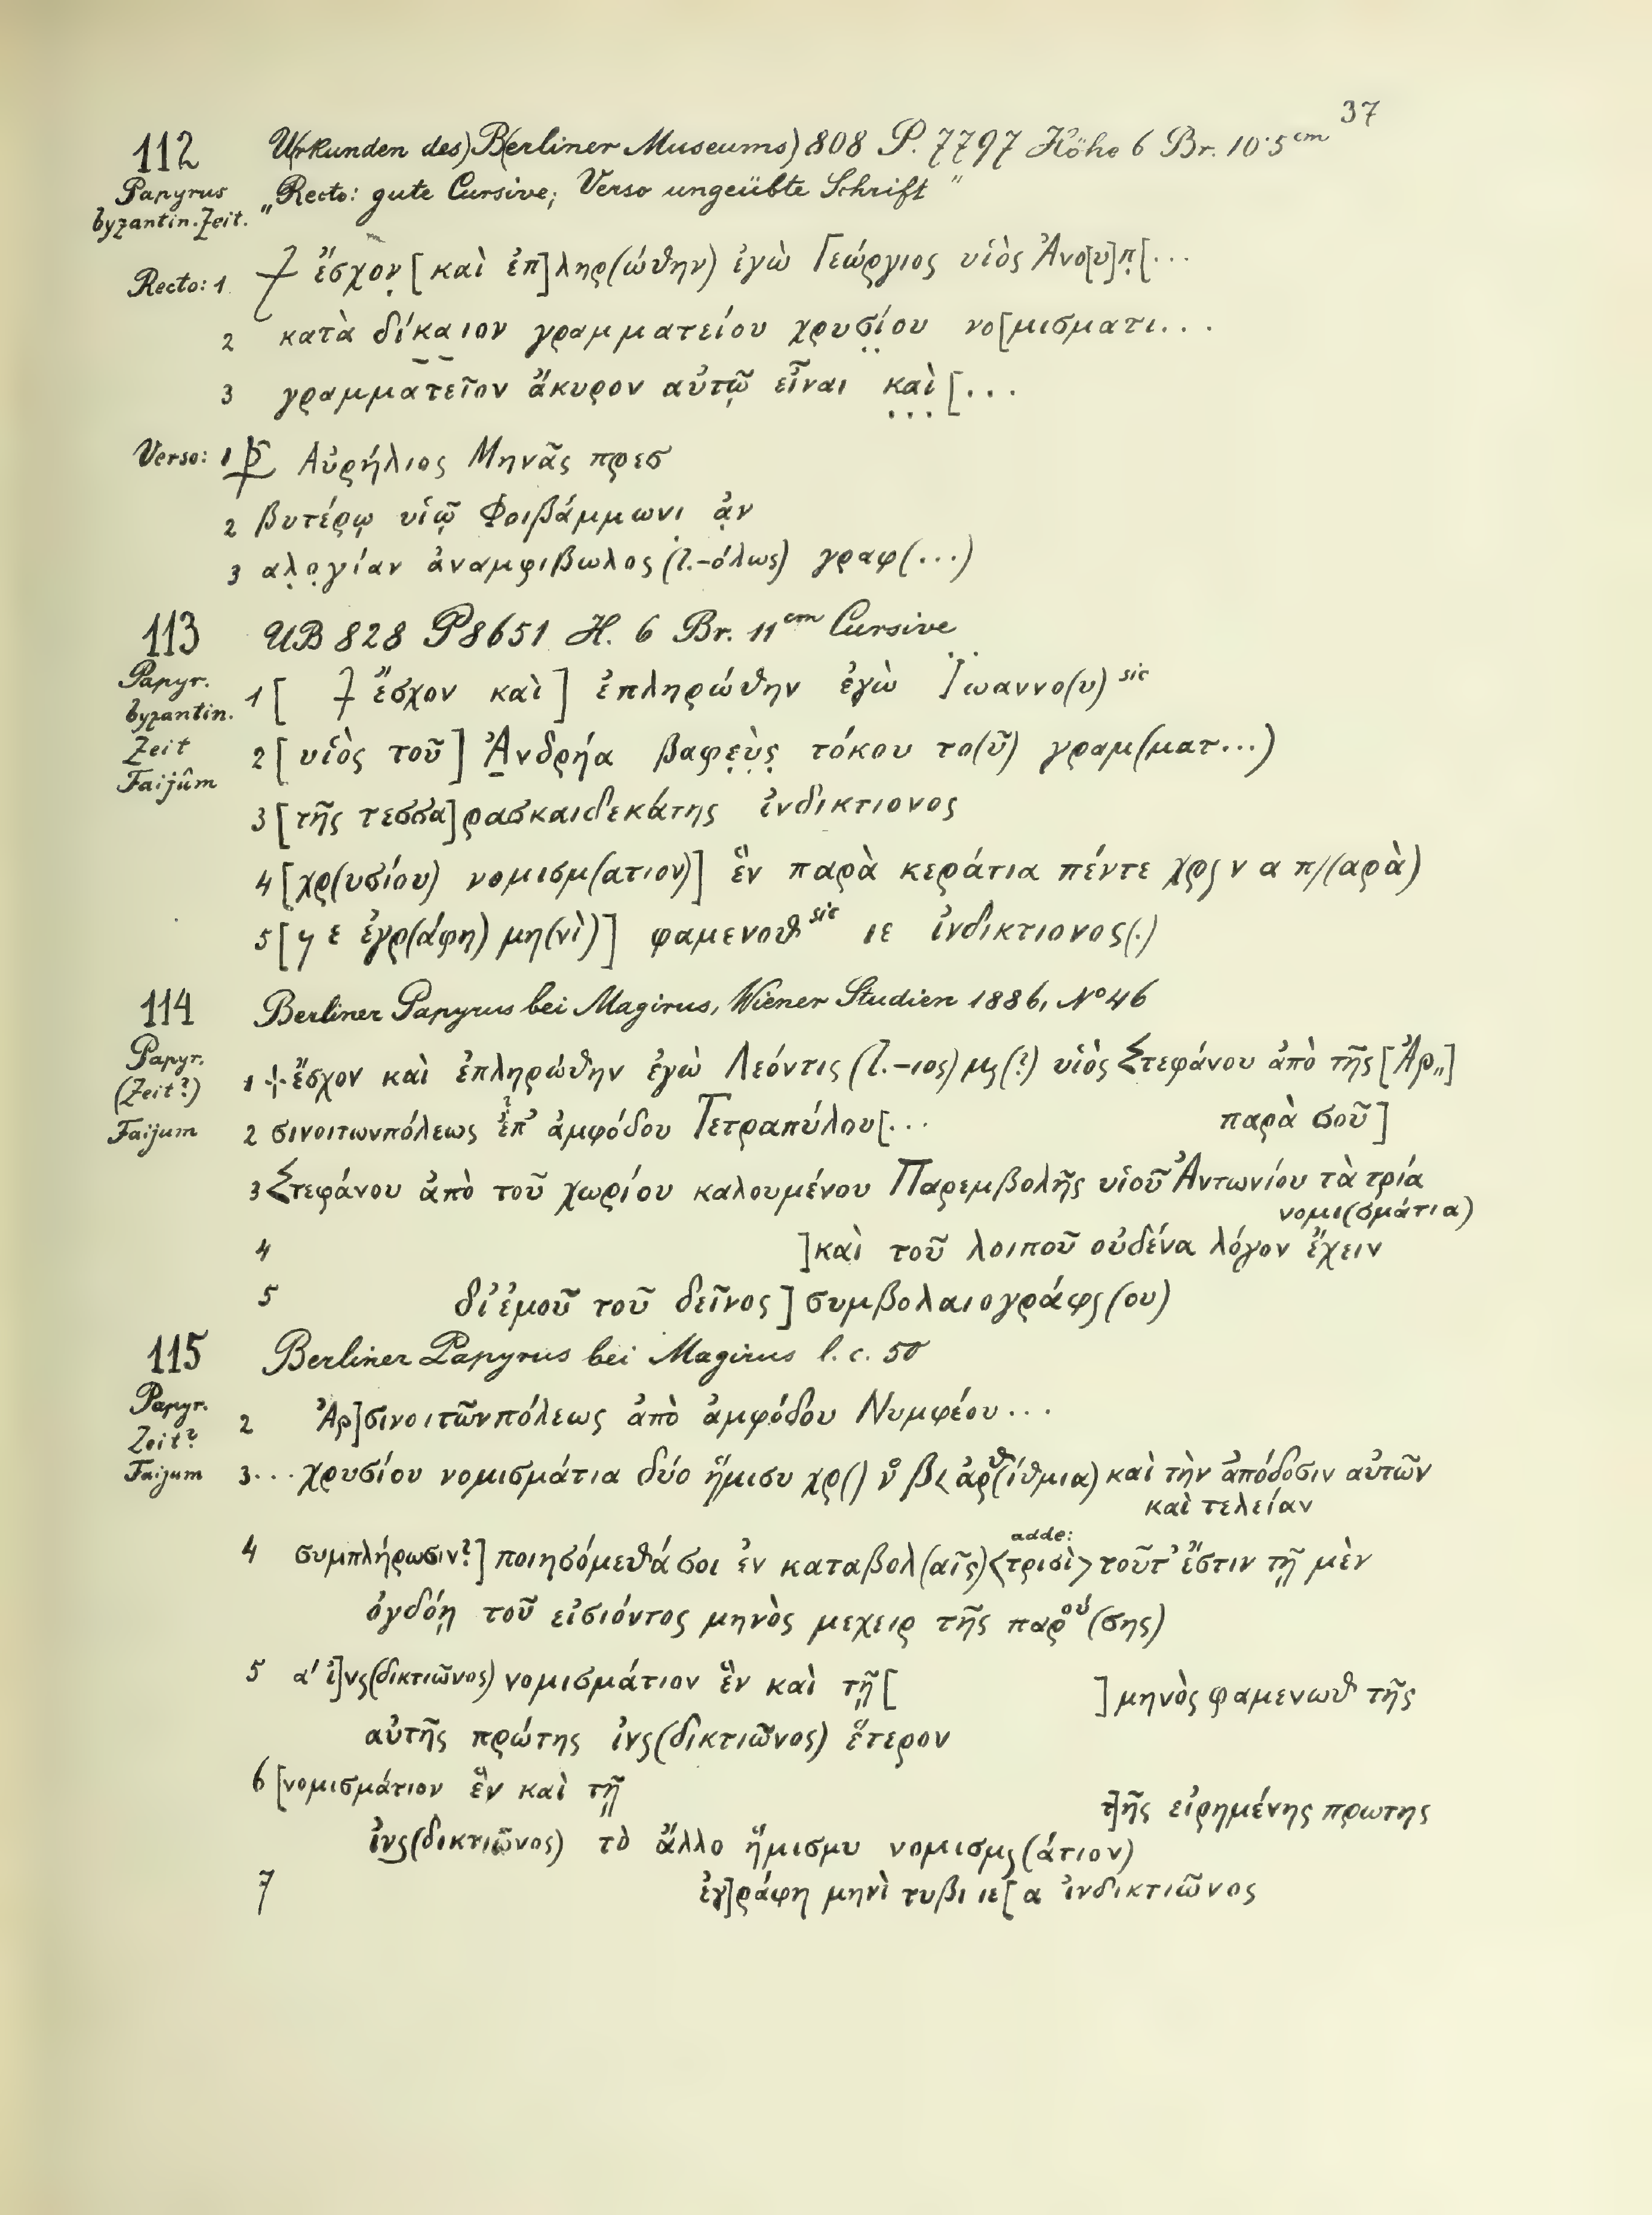 37
112 U(rkunden des) B(erliner Museums) 808 P. 7797 Höhe 6 Br. 10·5 cm
Papyrus byzantin. Zeit. „Recto: gute Cursive; Verso ungeübte Schrift"
Recto: 1 ⳨ ἔσχον̣ [καὶ ἐπ]ληρ(ώθην) ἐγὼ Γεώργιος υἱὸς Ἀνο[υ]π̣[...
2 κατὰ δίκαιον γραμματείου χρυσί̤ου νο[μισματι...
3 γραμματεῖον ἄκυρον αὐτῷ εἶναι κ̣α̣ὶ̣ [...
Verso: 1 Αὐρήλιος Μηνᾶς πρεσ
2 βυτέρῳ υἱῷ Φοιβάμμωνι̣ ἀ̣ν
3 αλ̣ο̣γίαν ἀναμφιβωλος (l.-όλως) γραφ(...)
113 UB 828 P 8651 H. 6 Br. 11 cm Cursive
Papyr. byzantin. Zeit Faijûm
1 [ ⳨ ἔσχον καὶ] ἐπληρώθην ἐγὼ Ϊωαννο(υ) sic
2 [υἱὸς τοῦ] Ἀνδρήα βαφε̣ὺ̣ς̣ τόκου το(ῦ) γραμ(ματ...)
3 [τῆς τεσσα]ρασκαιδεκάτης ἰνδικτιονος
4 [χρ(υσίου) νομισμ(ατιον)] ἓν παρὰ κεράτια πέντε χρς ν α π//(αρὰ)
5 [γ ε ἐγρ(άφη) μη(νὶ)] φαμενοθ sic ιε ἰνδικτιονος(.)
114 Berliner Papyrus bei Magirus, Wiener Studien 1886, No 46
Papyr. (Zeit?) Faijum
1 ⊹ ἔσχον καὶ ἐπληρώθην ἐγὼ Λεόντις (l.-ιος) μς(?) υἱὸς Στεφάνου ἀπὸ τῆς [Ἀρ„]
2 σινοιτωνπόλεως ἐπ' ? ἀμφόδου Τετραπύλου[... παρὰ σοῦ]
3 Στεφάνου ἀπὸ τοῦ χωρίου καλουμένου Παρεμβολῆς υἱοῦ Ἀντωνίου τὰ τρία
νομι(σμάτια)
4 ]καὶ τοῦ λοιποῦ οὐδένα λόγον ἔχειν
5 δι' ἐμοῦ τοῦ δεῖνος] συμβολαιογράφς(ου)
115 Berliner Papyrus bei Magirus l. c. 50
Papyr. Zeit? Faijum
2 Ἀρ]σινοιτῶνπόλεως ἀπὸ ἀμφόδου Νυμφέου...
3... χρυσίου νομισμάτια δύο ἥμισυ χρ() ν̊ β< ἀρθ(ίθμια) καὶ τὴν ἀπόδοσιν αὐτῶν
καὶ τελείαν
4 συμπλήρωσιν?] ποιησόμεθά σοι ἐν καταβολ(αῖς) adde: <τρισὶ> τοῦτ' ἔστιν τῇ μὲν
ὀγδόῃ τοῦ εἰσιόντος μηνὸς μεχειρ τῆς παρού(σης)
5 α' ἰ]νς(δικτιῶνος) νομισμάτιον ἓν καὶ τῇ [ ] μηνὸς φαμενωθ τῆς
αὐτῆς πρώτης ἰνς(δικτιῶνος) ἕτερον
6 [νομισμάτιον ἓν καὶ τῇ τ]ῆς εἰρημένης πρωτης
ἰνς(δικτιῶνος) τὸ ἄλλο ἥμισμυ νομισμς(άτιον)
7 ἐγ]ράφη μηνὶ τυβι ιε[ α ἰνδικτιῶνος